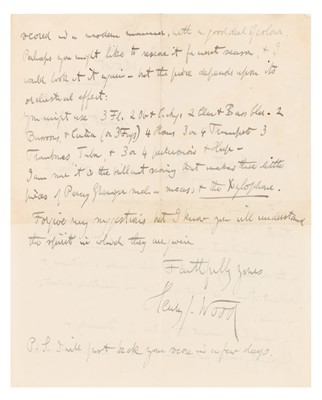 scored in a modern manner, with a good deal of colour.
Perhaps you might like to rescore it for next season, & I
would look at it again — but the piece depends upon its
orchestral effect:
You might use — 3 Fl. 2 Ob & C. Ang 2 Clar & Bass Clar — 2
Bassoons & Contra (or 3 Fags) 4 Horns 3 or 4 Trumpets 3
Trombones Tuba & 3 or 4 percussions & Harp —
I am sure it is the brilliant scoring that makes these little
pieces of Percy Grainger such a success & the Xylophone.
Forgive my suggestions but I know you will understand
the spirit in which they are given
Faithfully yours
Henry J. Wood
P.S. I will post back your score in a few days.